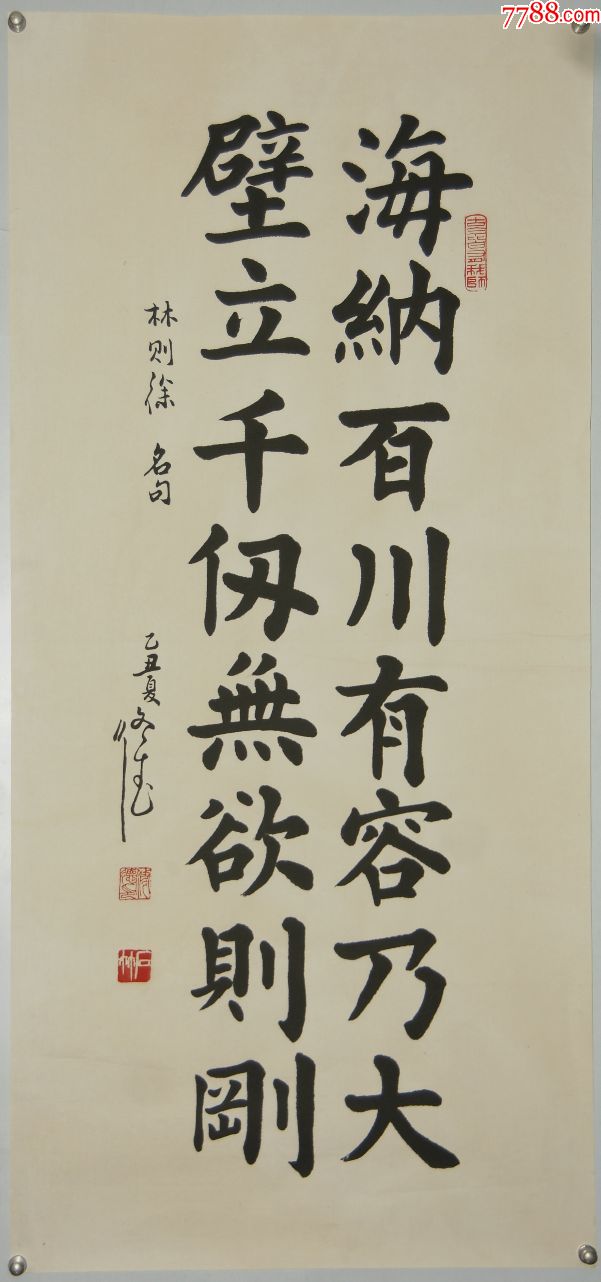 7788.com
海納百川有容乃大
壁立千仞無欲則剛
林则徐 名句
乙丑夏
石竹